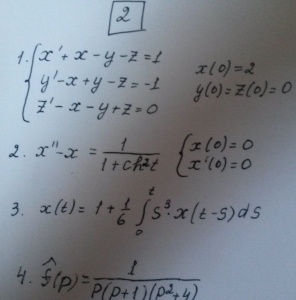 2
1. { x' + x - y - z = 1    x(0) = 2
y' - x + y - z = -1    y(0) = z(0) = 0
z' - x - y + z = 0
2. x'' - x = 1/(1 + ch²t)    { x(0) = 0
x'(0) = 0
3. x(t) = 1 + 1/6 ∫₀ᵗ s³·x(t-s)ds
4. f̂(p) = 1/(p(p+1)(p²+4))